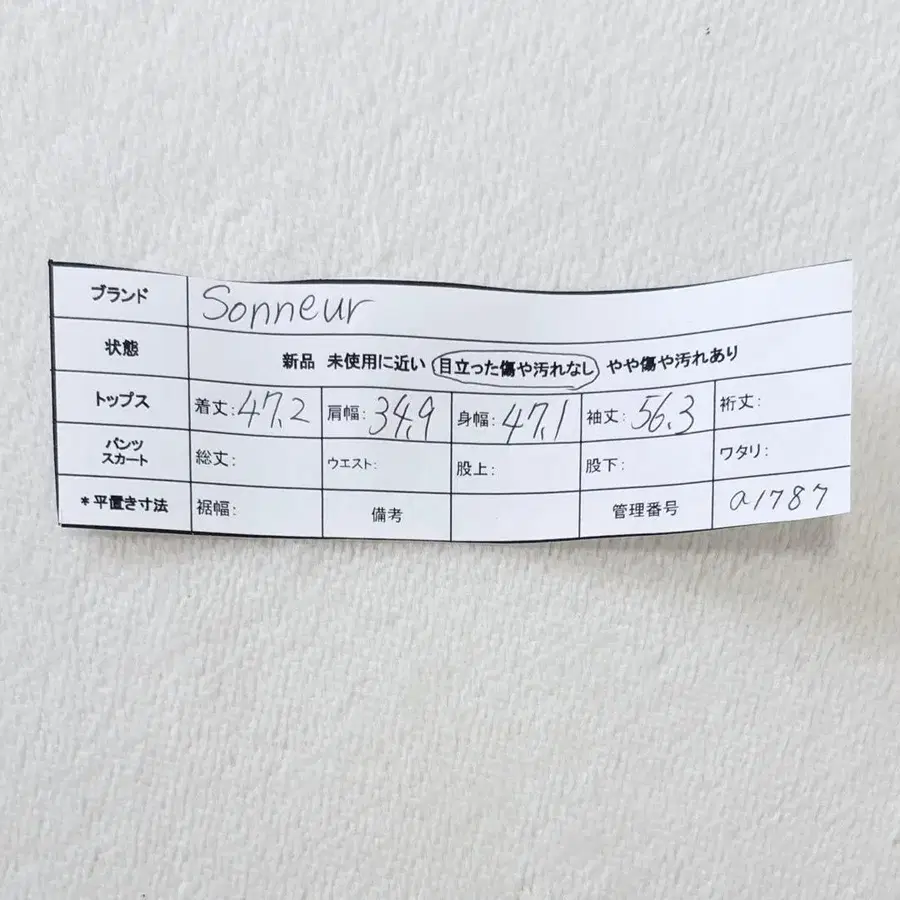 ブランド Sonneur
状態 新品 未使用に近い 目立った傷や汚れなし やや傷や汚れあり
トップス 着丈:47.2 肩幅:34.9 身幅:47.1 袖丈:56.3 裄丈:
パンツ
スカート 総丈: ウエスト: 股上: 股下: ワタリ:
*平置き寸法 裾幅: 備考 管理番号 a1787